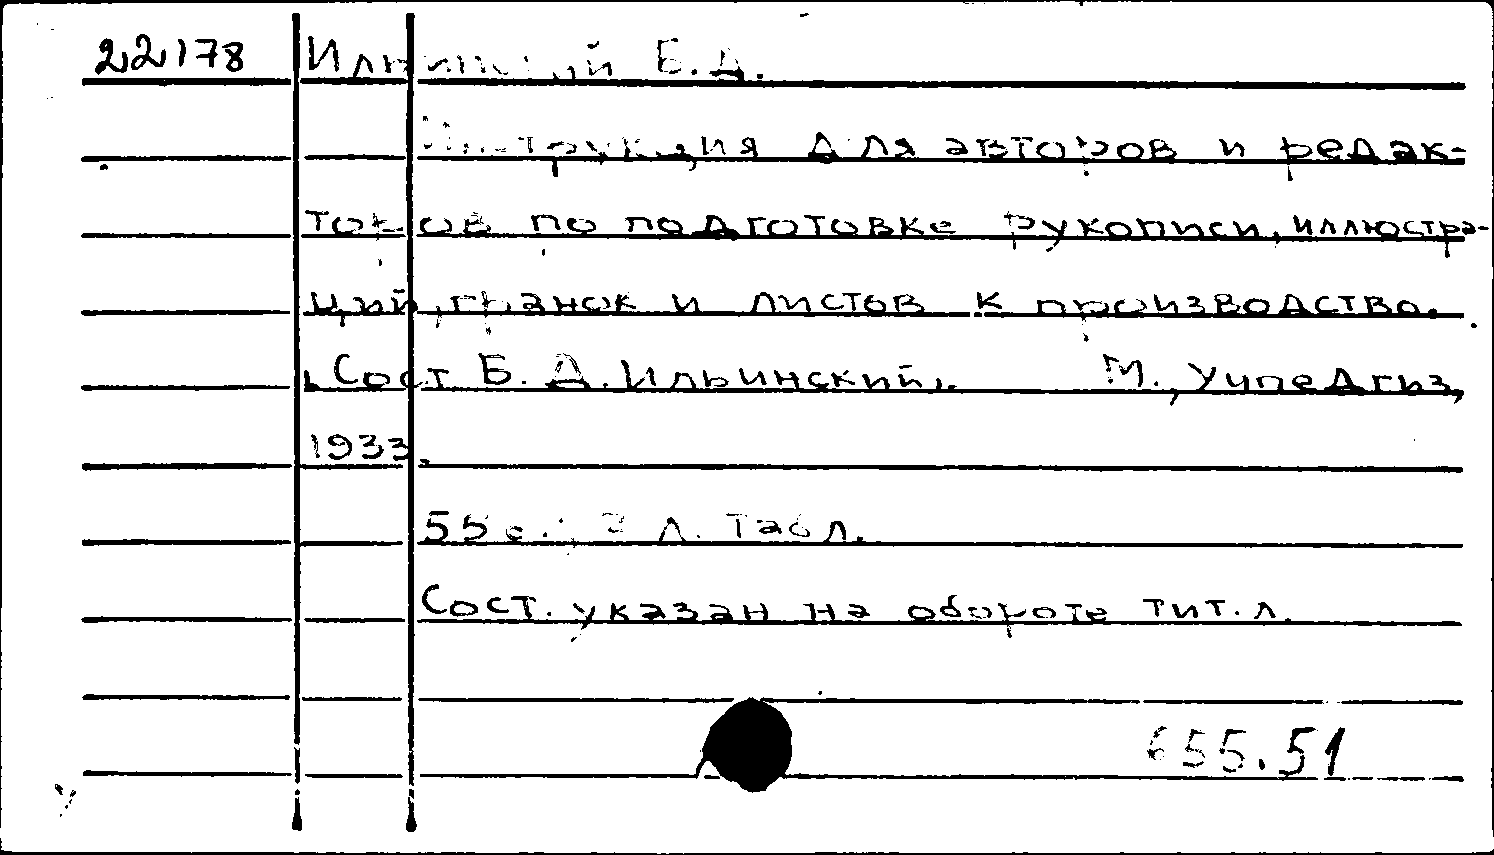 22178 Ильинский Б.Д.
Инструкция для авторов и редак-
торов по подготовке рукописи, иллюстра-
ций, гранок и листов к производство.
[Сост Б.Д. Ильинский]. М., Учпедгиз,
1933.
55 с.; 3 л. табл.
Сост. указан на обороте тит. л.
655.51